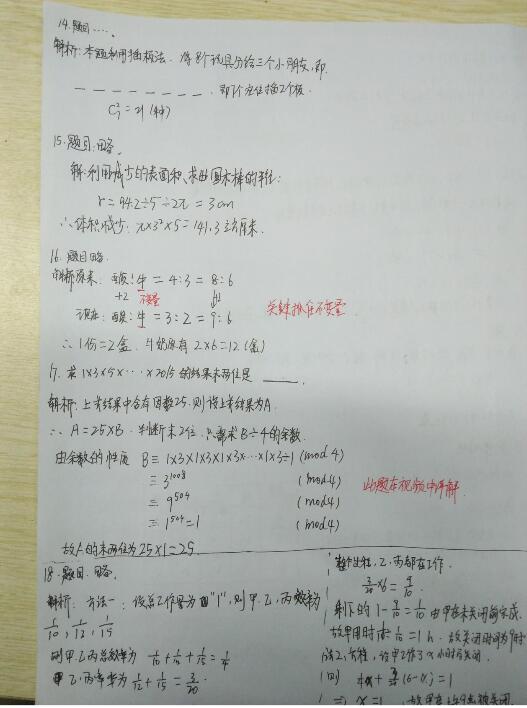 14. 题目……。
解析:本题利用插板法。将8个玩具分给三个小朋友,即
— — — — — — — — . 即7个空位插2个板.
C₇² = 21 (种)
15. 题目:略。
解:利用减少的表面积,求出圆木棒的半径:
r = 94.2÷5÷2π = 3cm
∴体积减少: π×3²×5 = 141.3 立方厘米.
16. 题目略.
解析原来: : 牛 = 4:3 = 8:6
+2 不变量
现在: : 牛 = 3:2 = 9:6
关键抓住不变量
∴ 1份=2盒. 牛奶原有 2×6=12 (盒)
17. 求1×3×5×…×2015 的结果末两位是 ____.
解析:上式结果中含有因数25. 则设上式结果为A.
∴ A=25×B. 判断末2位,只需求B÷4的余数.
由余数的性质 B≡ 1×3×1×3×1×3×…×1×3÷1 (mod 4)
≡ 3¹⁰⁰⁸ (mod 4)
≡ 9⁵⁰⁴ (mod 4)
≡ 1⁵⁰⁴=1 (mod 4)
此题在视频中讲解.
故A的末两位为25×1=25.
18. 题目. 略.
解析: 方法一: 设总工作量为"1",则甲.乙,丙效率为
1/10, 1/12, 1/15
则甲乙丙总效率为 1/10+1/12+1/15=1/4
乙,丙率为 1/12+1/15=3/20
乙,丙都在工作.
3/20×6=9/10
剩下的 1-9/10=1/10 由甲在未关闭前完成.